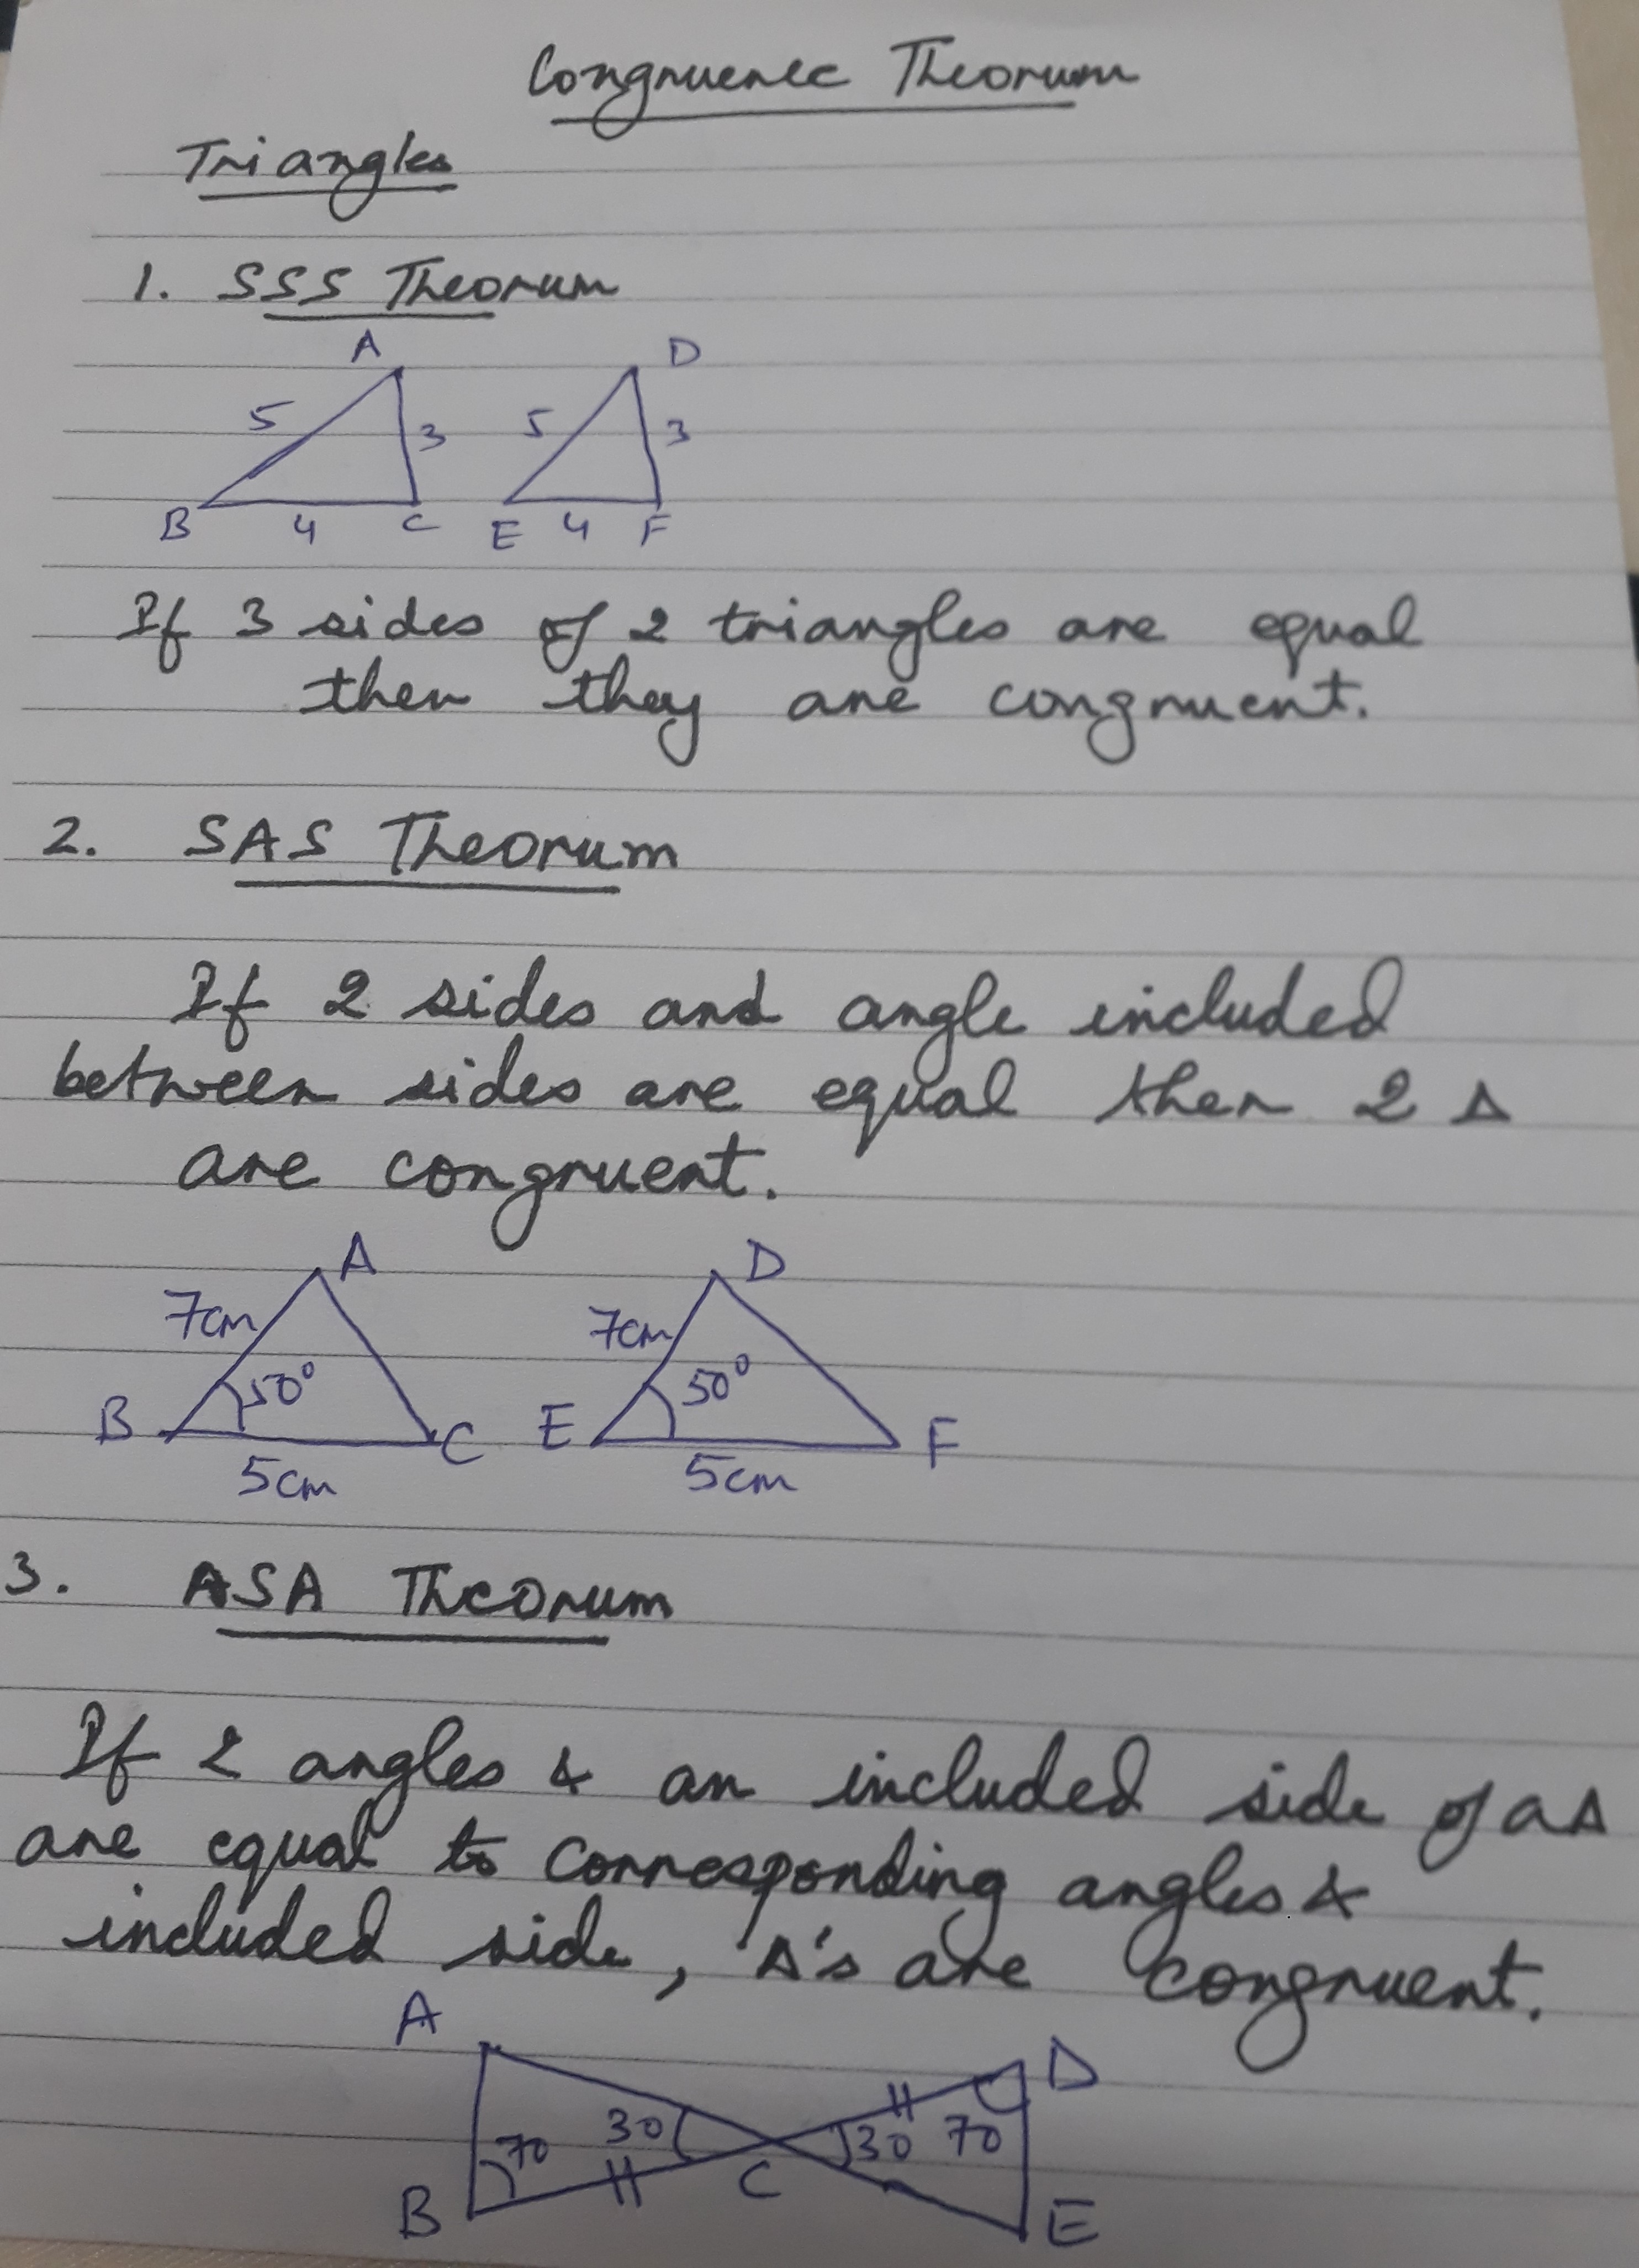 Congruence Theorum
Triangles
1. SSS Theorum
A D
5 3 5 3
B 4 C E 4 F
If 3 sides of 2 triangles are equal
then they are congruent.
2. SAS Theorum
If 2 sides and angle included
between sides are equal then 2 Δ
are congruent.
A D
7cm 7cm
50° 50°
B C E F
5cm 5cm
3. ASA Theorum
If 2 angles & an included side of a Δ
are equal to corresponding angles &
included side, Δ's are congruent.
A D
70 30 30 70
B C E